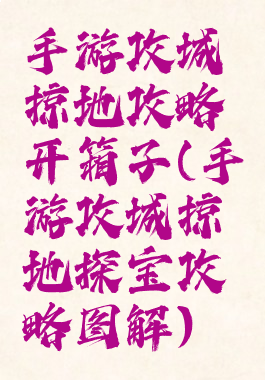 手游攻城
掠地攻略
开箱子(手
游攻城掠
地探宝攻
略图解)